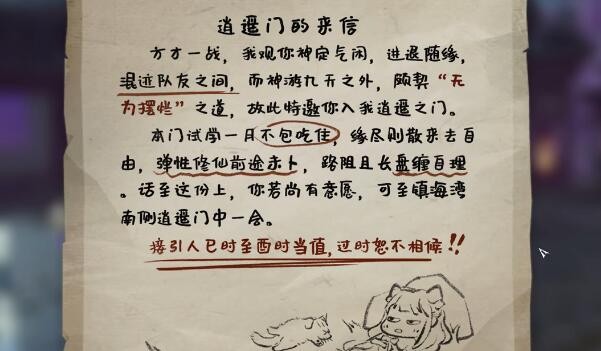 逍遥门的来信
方才一战，我观你神定气闲，进退随缘，
混迹队友之间，而神游九天之外，颇契“无
为摆烂”之道，故此特邀你入我逍遥之门。
本门试学一月不包吃住，缘尽则散来去自
由，弹性修仙前途未卜，路阻且长盘缠自理
。话至这份上，你若尚有意愿，可至镇海湾
南侧逍遥门中一会。
接引人巳时至酉时当值，过时恕不相候!!